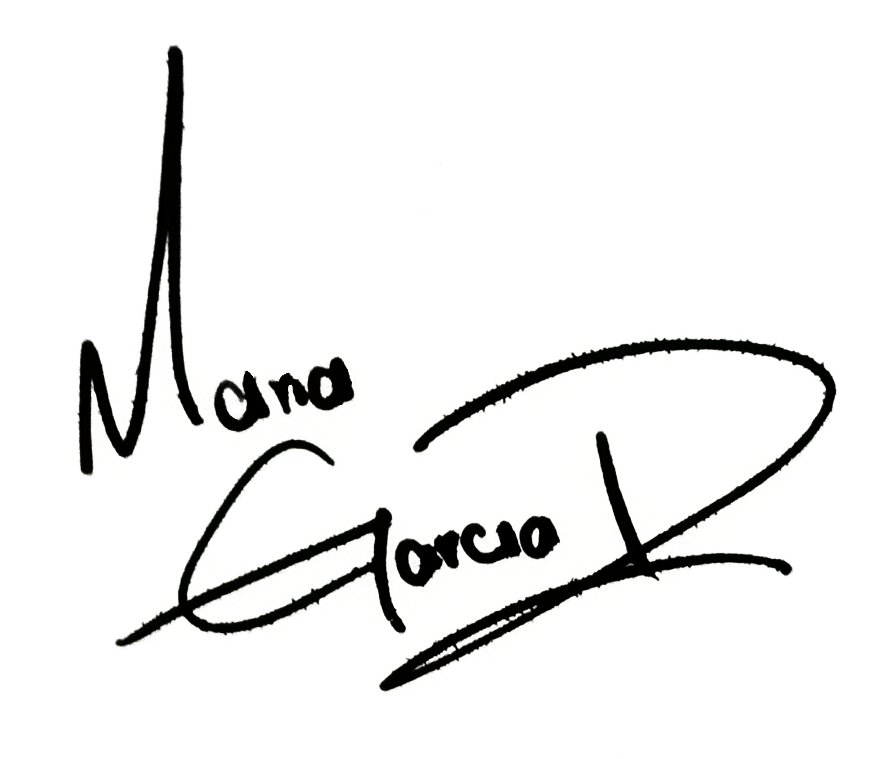 Maria
Garcia D